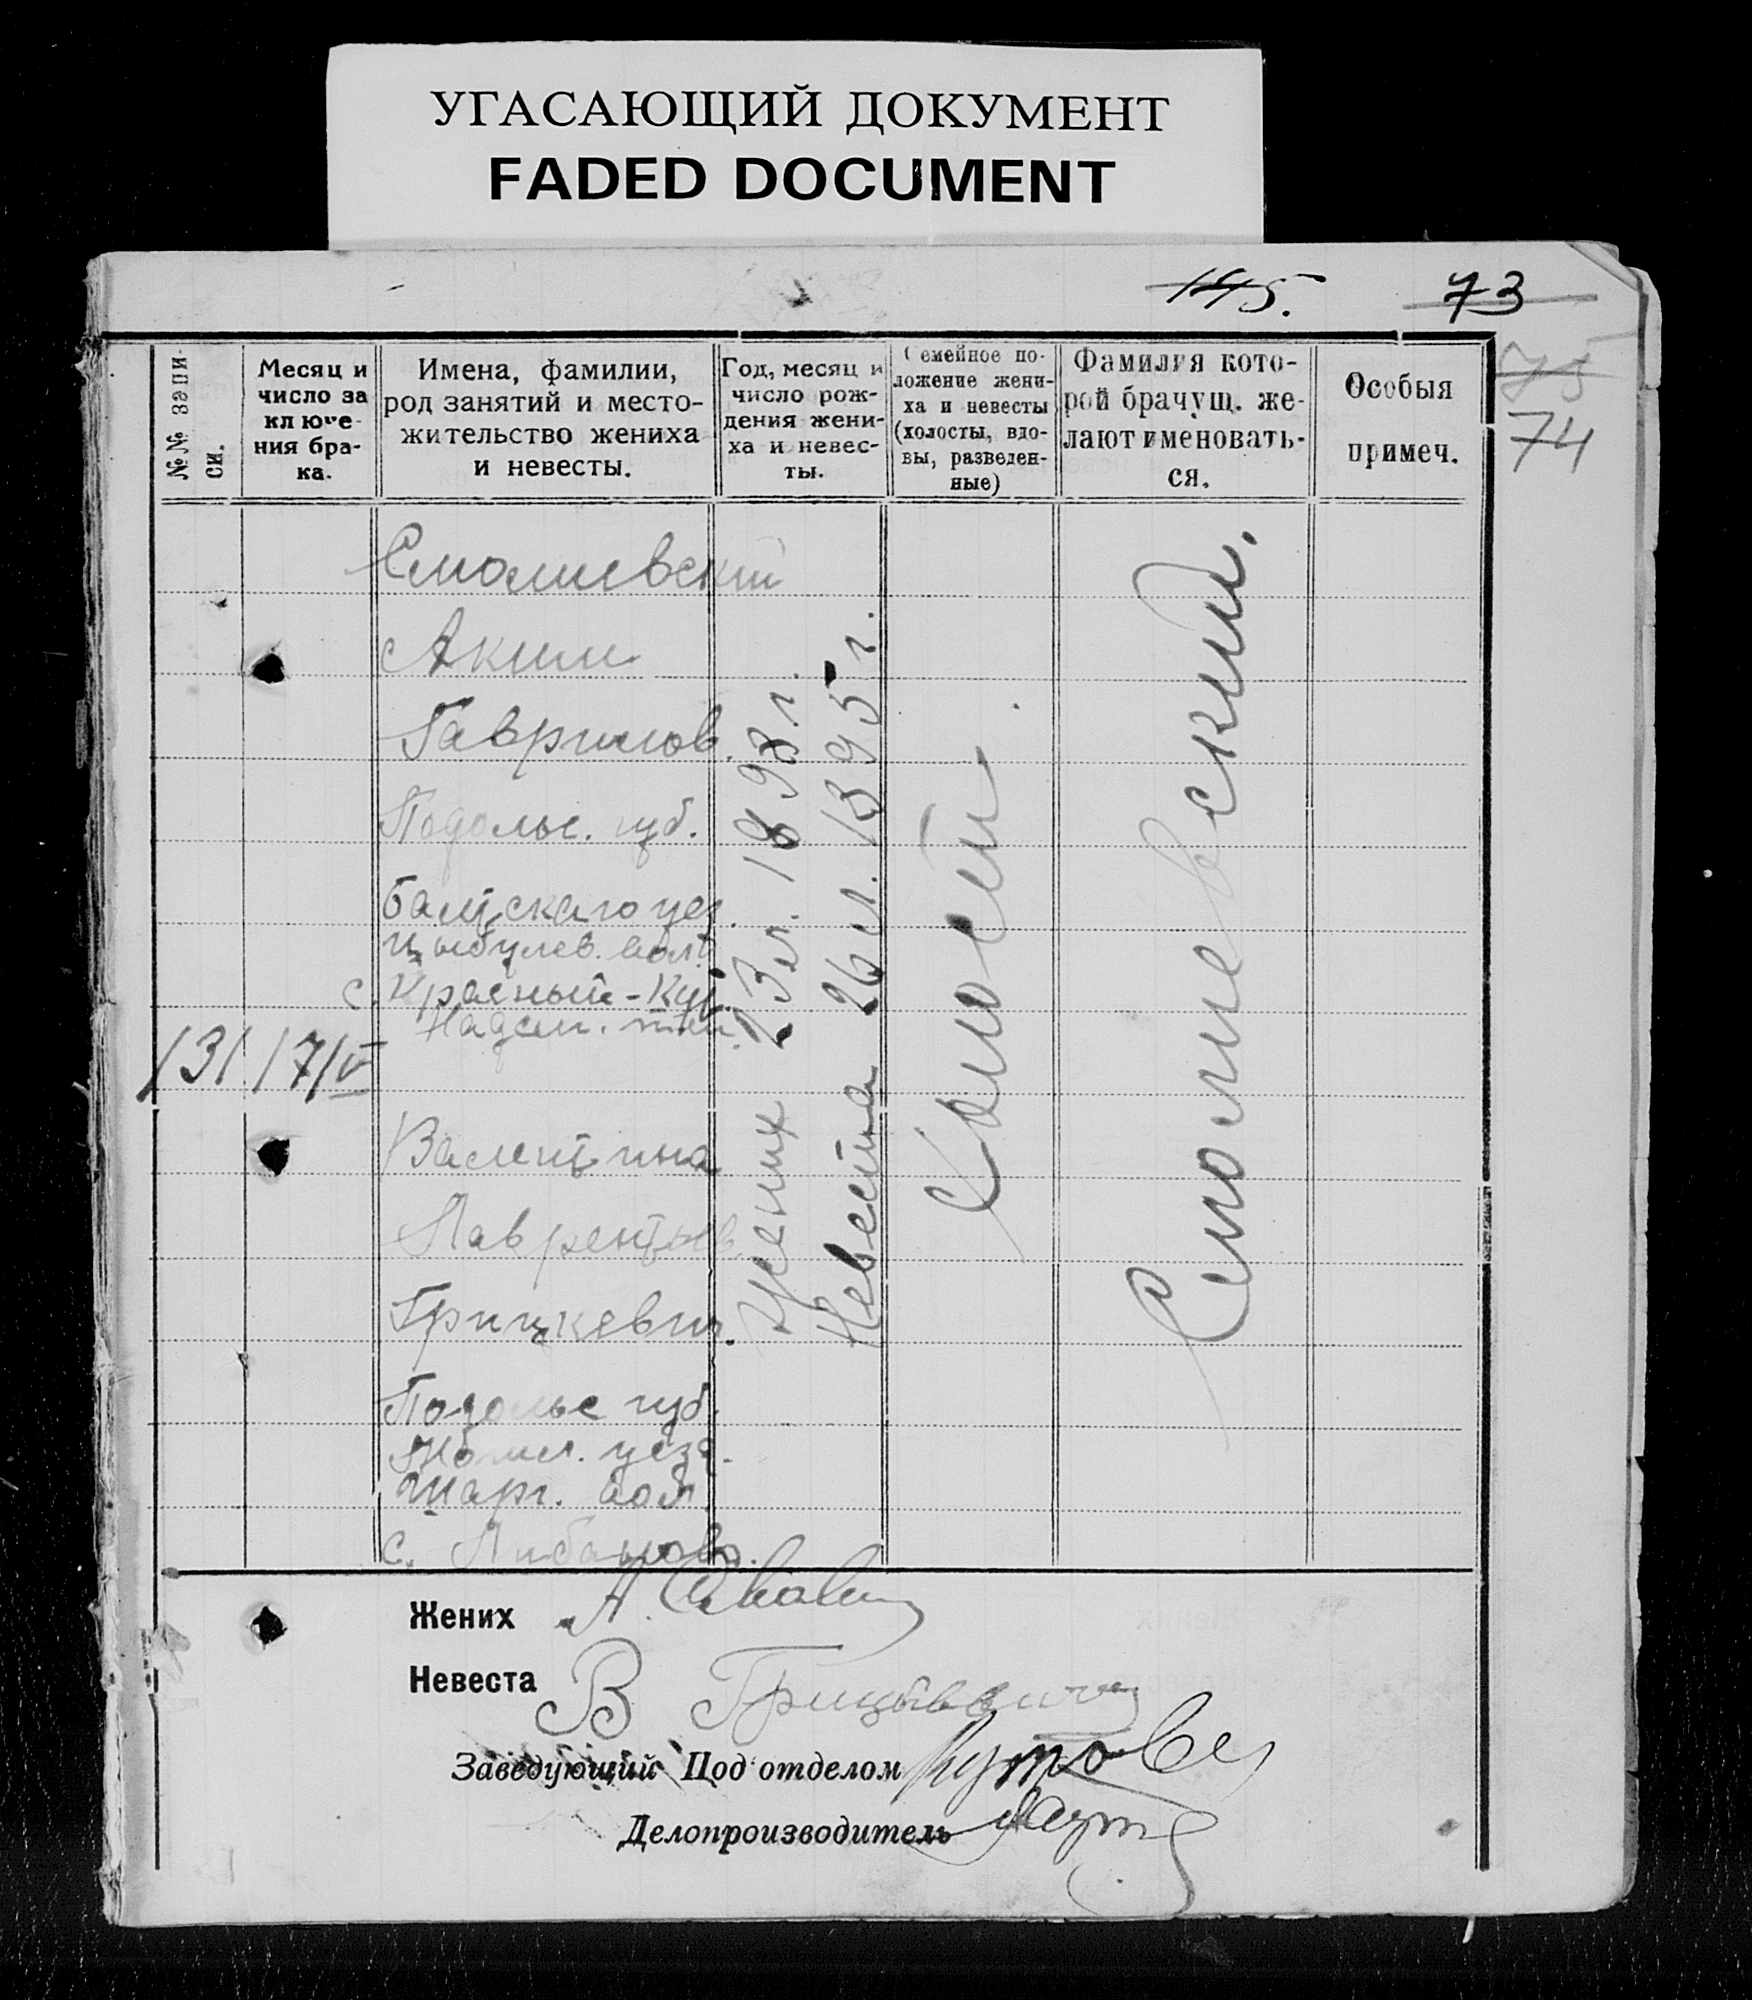 УГАСАЮЩИЙ ДОКУМЕНТ
FADED DOCUMENT
145. 73
75
74
№№ записи.
Месяц и число заключения брака.
Имена, фамилии, род занятий и местожительство жениха и невесты.
Год, месяц и число рождения жениха и невесты.
Семейное положение жениха и невесты (холосты, вдовы, разведенные)
Фамилия которой брачущ. желают именоваться.
Особыя примеч.
Смолиевский
Аким
Гаврилов.
Подольс. губ.
Балтскаго уез.
Цыбулев. вол.
с. Красный-Кут
131 17/IV
Валентина
Лаврентьев.
Грицкевич.
Подольс губ.
уезд.
Шарг. вол.
с.
Жених 23 л. 1898 г.
Невеста 26 л. 1895 г.
Холосты
Смолиевский.
Жених А.
Невеста В Грицкевич
Заведующий Под'отделом
Делопроизводитель